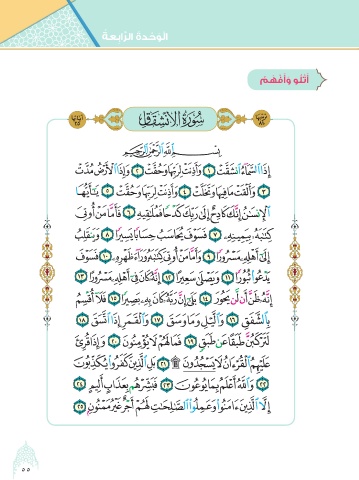 الوَحدَةُ الرّابعَةُ
أَتْلُو وَأَفْهَمُ
سُورَةُ الِانْشِقَاقِ
بِسْمِ اللَّهِ الرَّحْمَنِ الرَّحِيمِ
إِذَا السَّمَاءُ انشَقَّتْ ١ وَأَذِنَتْ لِرَبِّهَا وَحُقَّتْ ٢ وَإِذَا الْأَرْضُ مُدَّتْ
٣ وَأَلْقَتْ مَا فِيهَا وَتَخَلَّتْ ٤ وَأَذِنَتْ لِرَبِّهَا وَحُقَّتْ ٥ يَٰأَيُّهَا
الْإِنسَٰنُ إِنَّكَ كَادِحٌ إِلَىٰ رَبِّكَ كَدْحًا فَمُلَٰقِيهِ ٦ فَأَمَّا مَنْ أُوتِيَ
كِتَٰبَهُ بِيَمِينِهِ ٧ فَسَوْفَ يُحَاسَبُ حِسَابًا يَسِيرًا ٨ وَيَنقَلِبُ
إِلَىٰ أَهْلِهِ مَسْرُورًا ٩ وَأَمَّا مَنْ أُوتِيَ كِتَٰبَهُ وَرَاءَ ظَهْرِهِ ١٠ فَسَوْفَ
يَدْعُوا ثُبُورًا ١١ وَيَصْلَىٰ سَعِيرًا ١٢ إِنَّهُ كَانَ فِي أَهْلِهِ مَسْرُورًا ١٣
إِنَّهُ ظَنَّ أَن لَّن يَحُورَ ١٤ بَلَىٰ إِنَّ رَبَّهُ كَانَ بِهِ بَصِيرًا ١٥ فَلَا أُقْسِمُ
بِالشَّفَقِ ١٦ وَاللَّيْلِ وَمَا وَسَقَ ١٧ وَالْقَمَرِ إِذَا اتَّسَقَ ١٨
لَتَرْكَبُنَّ طَبَقًا عَن طَبَقٍ ١٩ فَمَا لَهُمْ لَا يُؤْمِنُونَ ٢٠ وَإِذَا قُرِئَ
عَلَيْهِمُ الْقُرْءَانُ لَا يَسْجُدُونَ ۩ ٢١ بَلِ الَّذِينَ كَفَرُوا يُكَذِّبُونَ
٢٢ وَاللَّهُ أَعْلَمُ بِمَا يُوعُونَ ٢٣ فَبَشِّرْهُم بِعَذَابٍ أَلِيمٍ ٢٤
إِلَّا الَّذِينَ ءَامَنُوا وَعَمِلُوا الصَّٰلِحَٰتِ لَهُمْ أَجْرٌ غَيْرُ مَمْنُونٍ ٢٥
٥٥